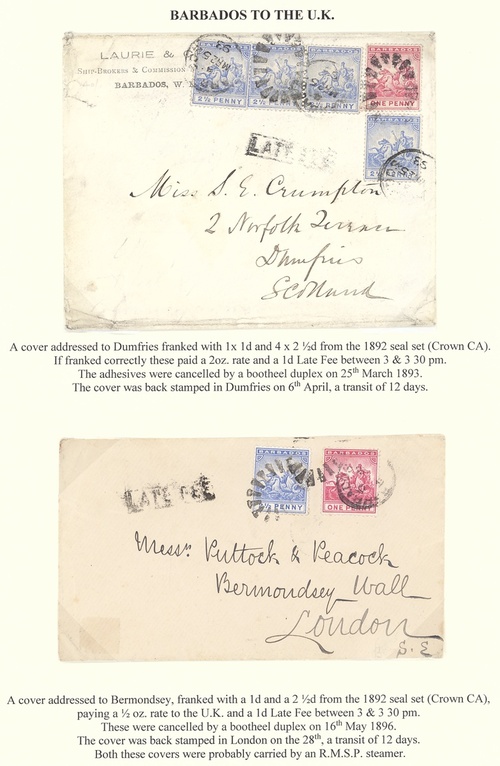 BARBADOS TO THE U.K.
LAURIE &
SHIP-BROKERS & COMMISSION
BARBADOS, W.
BARBADOS
BARBADOS
BARBADOS
BARBADOS
2½ PENNY
2½ PENNY
2½ PENNY
ONE PENNY
BARBADOS
LATE FEE
Miss S. E. Crumpton
2 Norfolk Terrace
Dumfries
Scotland
A cover addressed to Dumfries franked with 1x 1d and 4 x 2 ½d from the 1892 seal set (Crown CA).
If franked correctly these paid a 2oz. rate and a 1d Late Fee between 3 & 3 30 pm.
The adhesives were cancelled by a bootheel duplex on 25th March 1893.
The cover was back stamped in Dumfries on 6th April, a transit of 12 days.
BARBADOS
BARBADOS
LATE FEE
½ PENNY
ONE PENNY
Messrs Puttock & Peacock
Bermondsey Wall
London
S.E
A cover addressed to Bermondsey, franked with a 1d and a 2 ½d from the 1892 seal set (Crown CA),
paying a ½ oz. rate to the U.K. and a 1d Late Fee between 3 & 3 30 pm.
These were cancelled by a bootheel duplex on 16th May 1896.
The cover was back stamped in London on the 28th, a transit of 12 days.
Both these covers were probably carried by an R.M.S.P. steamer.